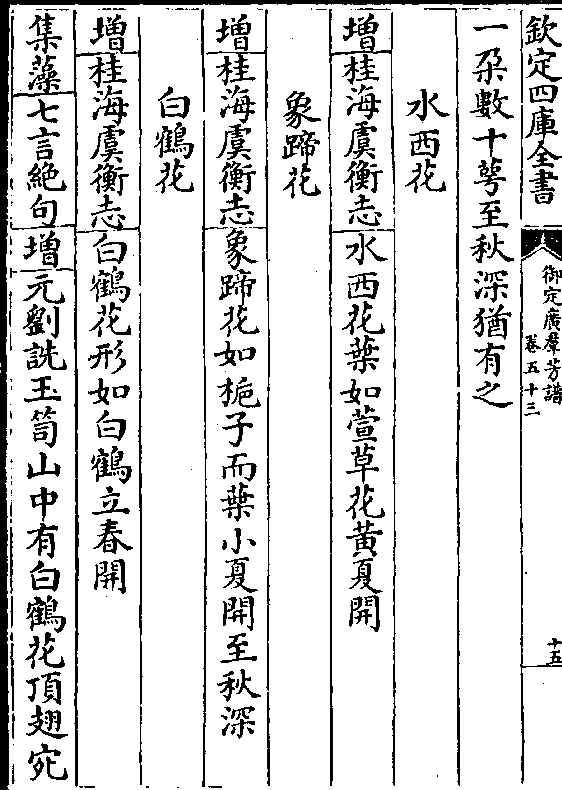 欽定四庫全書
御定廣羣芳譜
卷五十三
十五
一朶數十蕚至秋深猶有之
水西花
增桂海虞衡志水西花葉如萱草花黃夏開
象蹄花
增桂海虞衡志象蹄花如梔子而葉小夏開至秋深
白鶴花
增桂海虞衡志白鶴花形如白鶴立春開
集藻七言絶句增元劉詵玉笥山中有白鶴花頂翅宛